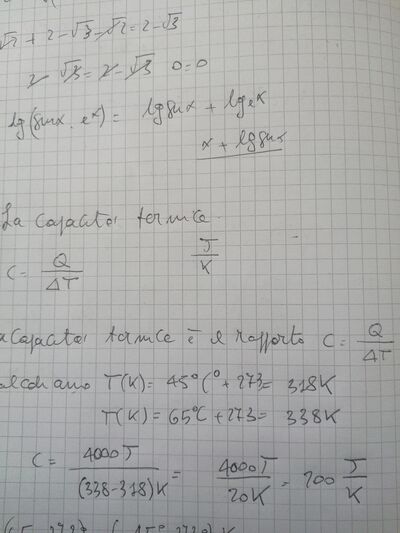 √2 + 2 - √3 - √2 = 2 - √3
2 - √3 = 2 - √3 0 = 0
lg(sin x · e^x) = lg sin x + lg e^x
x + lg sin x
La capacità termica
C = Q/ΔT J/K
a capacità termica è il rapporto C = Q/ΔT
alcoliamo T(K) = 45°C + 273 = 318K
T(K) = 65°C + 273 = 338K
C = 4000J/(338-318)K = 4000J/20K = 200 J/K